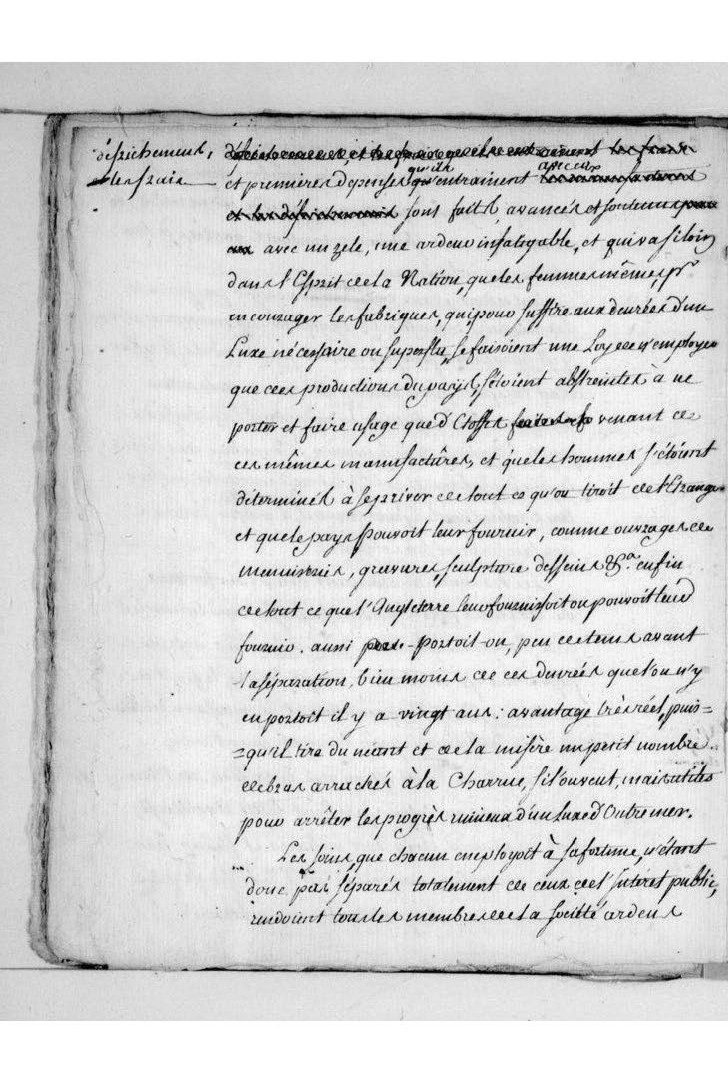 défrichements,
et les frais
et premieres depenses qu'ils entrainent avec eux
sont faits, avancés et soutenus
avec un zele, une ardeur infatigable, et qui va si loin
dans l'Esprit de la Nation, que les femmes mêmes, pr
encourager les fabriques, qui pour suffire aux denrées d'un
Luxe nécessaire ou superflu, se faisoient une Loy de n'employer
que des productions du pays, s'étoient abstreintes à ne
porter et faire usage que d'Etoffes venant de
ces mêmes manufactures, et que les hommes s'étoient
déterminés à se priver de tout ce qu'on tiroit de l'Etranger
et que le pays pouvoit leur fournir, comme ouvrages de
menuiserie, gravures, sculpture desseins &a. enfin
de tout ce que l'Angleterre leur fournissoit ou pouvoit leur
fournir. aussi portoit-on, peu de tems avant
la séparation, bien moins de ces denrées que l'on n'y
en portoit il y a vingt ans: avantage très réel, puis=
=qu'il tira du néant et de la misère un petit nombre
de bras arrachés à la Charrue, s'ils ouvent, mais utiles
pour arrêter les progrès ruineux d'un luxe d'Outremer.
Les soins, que chacun employoit à sa fortune, n'étant
donc pas séparés totalement de ceux de l'Interet public,
rendoient tous les membres de la société ardens